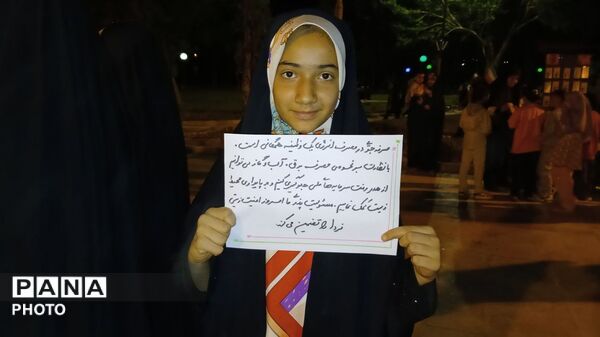 صرفه جویی در مصرف انرژی یک وظیفه همگانی است.
با نظارت بر نحوه‌ی مصرف برق، آب و گاز می‌توانیم
از هدر رفت سرمایه‌های ملی جلوگیری کنیم و به پایداری محیط
زیست کمک نماییم. مسئولیت پذیری ما امروز امنیت زیستی
فردا را تضمین می‌کند
PANA
PHOTO